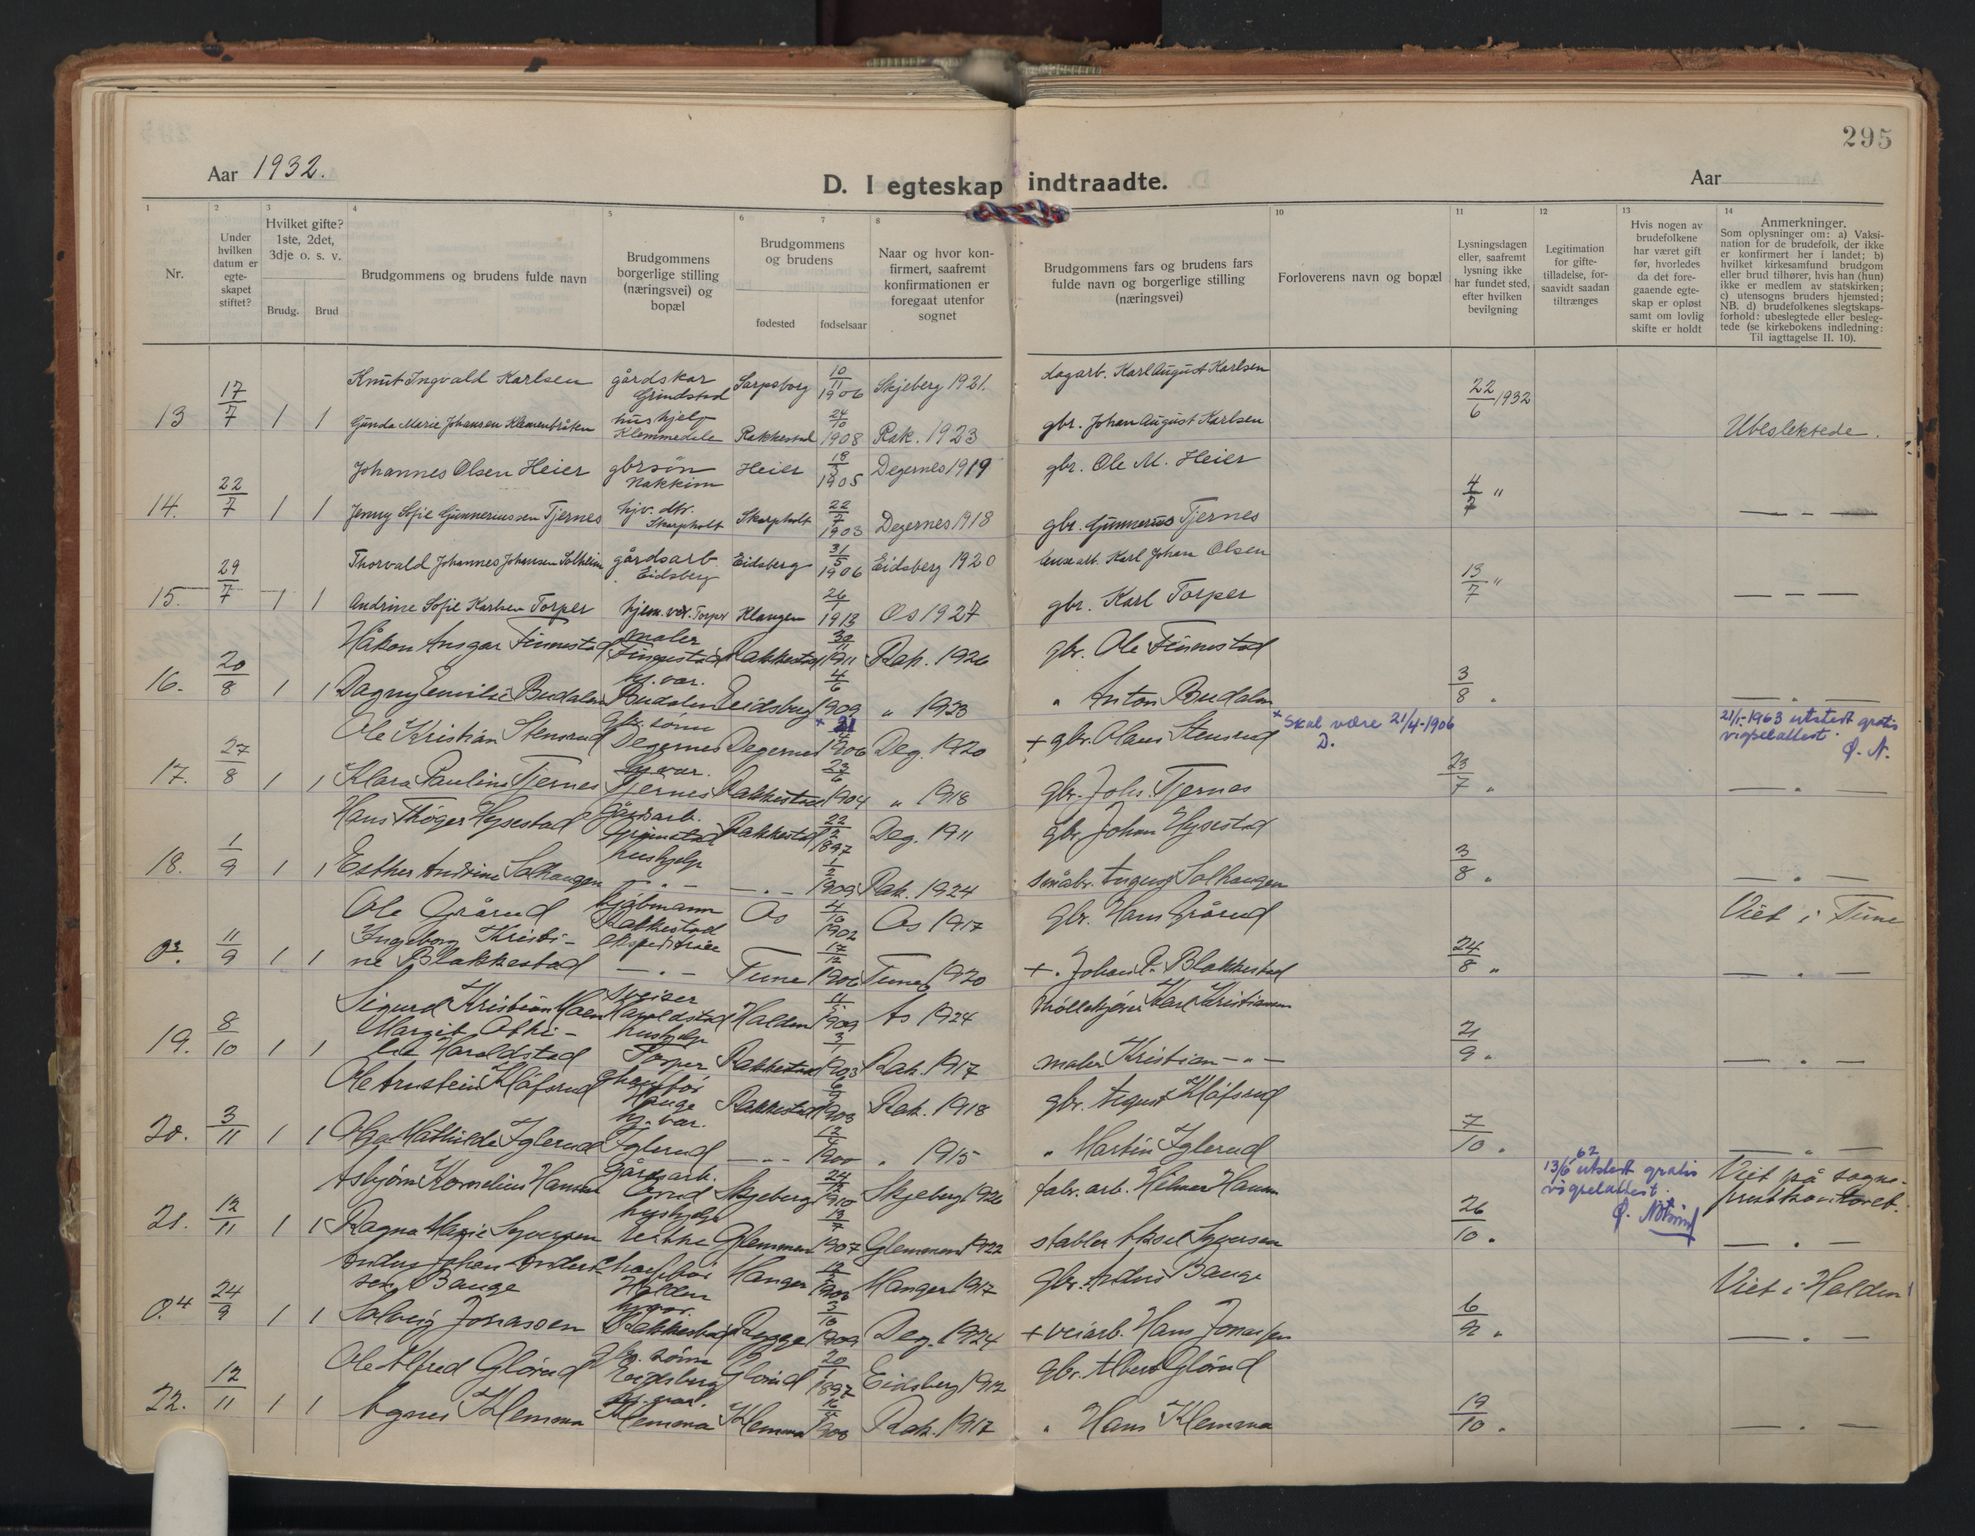 295
Aar 1932.
D. I egteskap indtraadte.
Aar
1 2 3 4 5 6 7 8 10 11 12 13 14
Nr.
Under hvilken datum er egteskapet stiftet?
Hvilket gifte? 1ste, 2det, 3dje o. s. v.
Brudg. Brud
Brudgommens og brudens fulde navn
Brudgommens borgerlige stilling (næringsvei) og bopæl
Brudgommens og brudens
fødested fødselsaar
Naar og hvor konfirmert, saafremt konfirmationen er foregaat utenfor sognet
Brudgommens fars og brudens fars fulde navn og borgerlige stilling (næringsvei)
Forloverens navn og bopæl
Lysningsdagen eller, saafremt lysning ikke har fundet sted, efter hvilken bevilgning
Legitimation for giftetilladelse, forsaavidt saadan tiltrænges
Hvis nogen av brudefolkene har været gift før, hvorledes da det foregaaende egteskap er opløst samt om lovlig skifte er holdt
Anmerkninger.
Som oplysninger om: a) Vaksination for de brudefolk, der ikke er konfirmert her i landet; b) hvilket kirkesamfund brudgom eller brud tilhører, hvis han (hun) ikke er medlem av statskirken; c) utensogns bruders hjemsted; NB. d) brudefolkenes slegtskapsforhold: ubeslegtede eller beslegtede (se kirkebokens indledning: Til iagttagelse II. 10).
Knut Ingvald Karlsen gårdskar Grindstad Sarpsborg 10/11 1906 Skjeberg 1921. dagarb. Karl August Karlsen
13 17/7 1 1 Gunda Marie Johansen Klemenbråten hushjelp Klemmedale Rakkestad 24/10 1908 Rak. 1923 gbr. Johan August Karlsen 22/6 1932 Ubeslektede.
Johannes Olsen Heier gbrsøn Nakkim Heier 18/5 1905 Degernes 1919 gbr. Ole M. Heier
14. 22/7 1 1 Jenny Sofie Gunneriussen Tjernes hjv. dtr. Skarpholt Skarpholt 22/7 1903 Degernes 1918 gbr. Gunnerius Tjernes 4/7 " — — —
Thorvald Johannes Johansen Solheim gårdsarb. Eidsberg Eidsberg 31/5 1906 Eidsberg 1920 Karl Johan Olsen
15. 29/7 1 1 Andrine Sofie Karlsen Torper hjem. vær. Torper Klangen 26/1 1913 Os 1927 gbr. Karl Torper 13/7 " — — —
Håkon Ansgar Finnestad maler Finnestad Rakkestad 30/11 1911 Rak. 1926 gbr. Ole Finnestad
16. 20/8 1 1 Dagny Emilie Budalen hj. vær. Budalen Eidsberg 4/6 1909 " 1923 " Anton Budalen 3/8 " — " —
Ole Kristian Stensrud gbr. sønn Degernes Degernes × 21/4 1906 Deg. 1920 + gbr. Olaus Stensrud × Skal være 21/4-1906 D. 21/1-1963 utstedt gratis vigselattest. Ø. N.
17. 27/8 1 1 Klara Pauline Tjernes hj. vær. Tjernes Rakkestad 23/6 1904 " 1918 gbr. Johs. Tjernes 23/7 " — " —
Hans Thøger Hysestad Gårdsarb. Grimstad Rakkestad 22/12 1897 Deg. 1911 gbr. Johan Hysestad
18. 1/9 1 1 Esther Andrine Solhaugen hushjelp — " — — " — 1/2 1909 Rak. 1924 småbr. August Solhaugen 3/8 " — " —
Ole Grårud kjøbmann Rakkestad Os 4/10 1902 Os 1917 gbr. Hans Grårud Viet i Tune
0.3 11/9 1 1 Ingeborg Kristine Blakkestad ekspeditrise — " — Tune 17/12 1906 Tune 1920 + " Johan P. Blakkestad 24/8 " — " —
Sigurd Kristian Moen sveiser Haraldstad Halden 4/5 1909 Ås 1924 Møllekjører Karl Kristiansen
19. 8/10 1 1 Margit Othilie Haraldstad hushjelp Torper Rakkestad 3/1 1903 Rak. 1917 maler Kristian — " — 21/9 " — " —
Ole Arnstein Kløfsrud Hauge Rakkestad 6/9 1903 Rak. 1918 gbr. August Kløfsrud
20. 3/11 1 1 Olga Mathilde Iglerud hj. vær. Iglerud — " — 12/4 1900 " 1915 " Martin Iglerud 7/10 " — " —
Asbjørn Kornelius Hansen Gårdsarb. Grud Skjeberg 24/12 1910 Skjeberg 1926 fabr. arb. Helmer Hansen 13/6 62 utstedt gratis vigselattest. Viet på sogneprestkontoret.
21. 12/11 1 1 Ragna Marie Syversen hushjelp Glemmen 13/7 1907 Glemmen 1922 stabler Aksel Syversen 26/10 " — " —
Anders Johan Andersen Bauge Halden Manger 12/2 1903 Manger 1917 gbr. Anders Bauge Viet i Halden
0.4 24/9 1 1 Solveig Jonassen hj. vær. Rakkestad Rygge 3/10 1909 Deg. 1924 + veiarb. Hans Jonassen 6/9 " — " —
Ole Alfred Glørud gbr. sønn Eidsberg Glørud 20/1 1897 Eidsberg 1912 gbr. Albert Glørud
22. 12/11 1 1 Agnes Klemma hj. vær. Klemma Klemma 16/5 1903 Rak. 1917 " Hans Klemma 19/10 " — " —